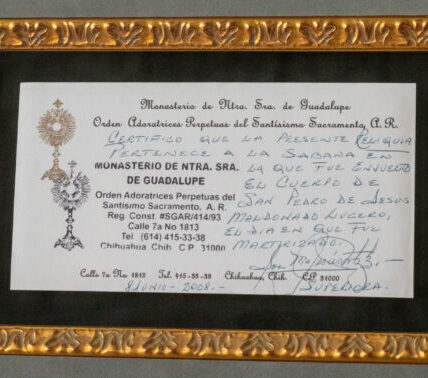 Monasterio de Ntra. Sra. de Guadalupe
Orden Adoratrices Perpetuas del Santísimo Sacramento, A. R.
CERTIFICO QUE LA PRESENTE RELIQUIA
PERTENECE A LA SABANA EN
LA QUE FUE ENVUELTO
EL CUERPO DE
SAN PEDRO DE JESUS
MALDONADO LUCERO,
EL DIA EN QUE FUE
MARTIRIZADO.
MONASTERIO DE NTRA. SRA.
DE GUADALUPE
Orden Adoratrices Perpetuas del
Santísimo Sacramento, A. R.
Reg. Const. #SGAR/414/93
Calle 7a No 1813
Tel (614) 415-33-38
Chihuahua Chih. C.P 31000
SUPERIORA.
Calle 7a No. 1813 Tel. 415-33-38 Chihuahua, Chih. C.P 31000
8 JUNIO - 2008.-